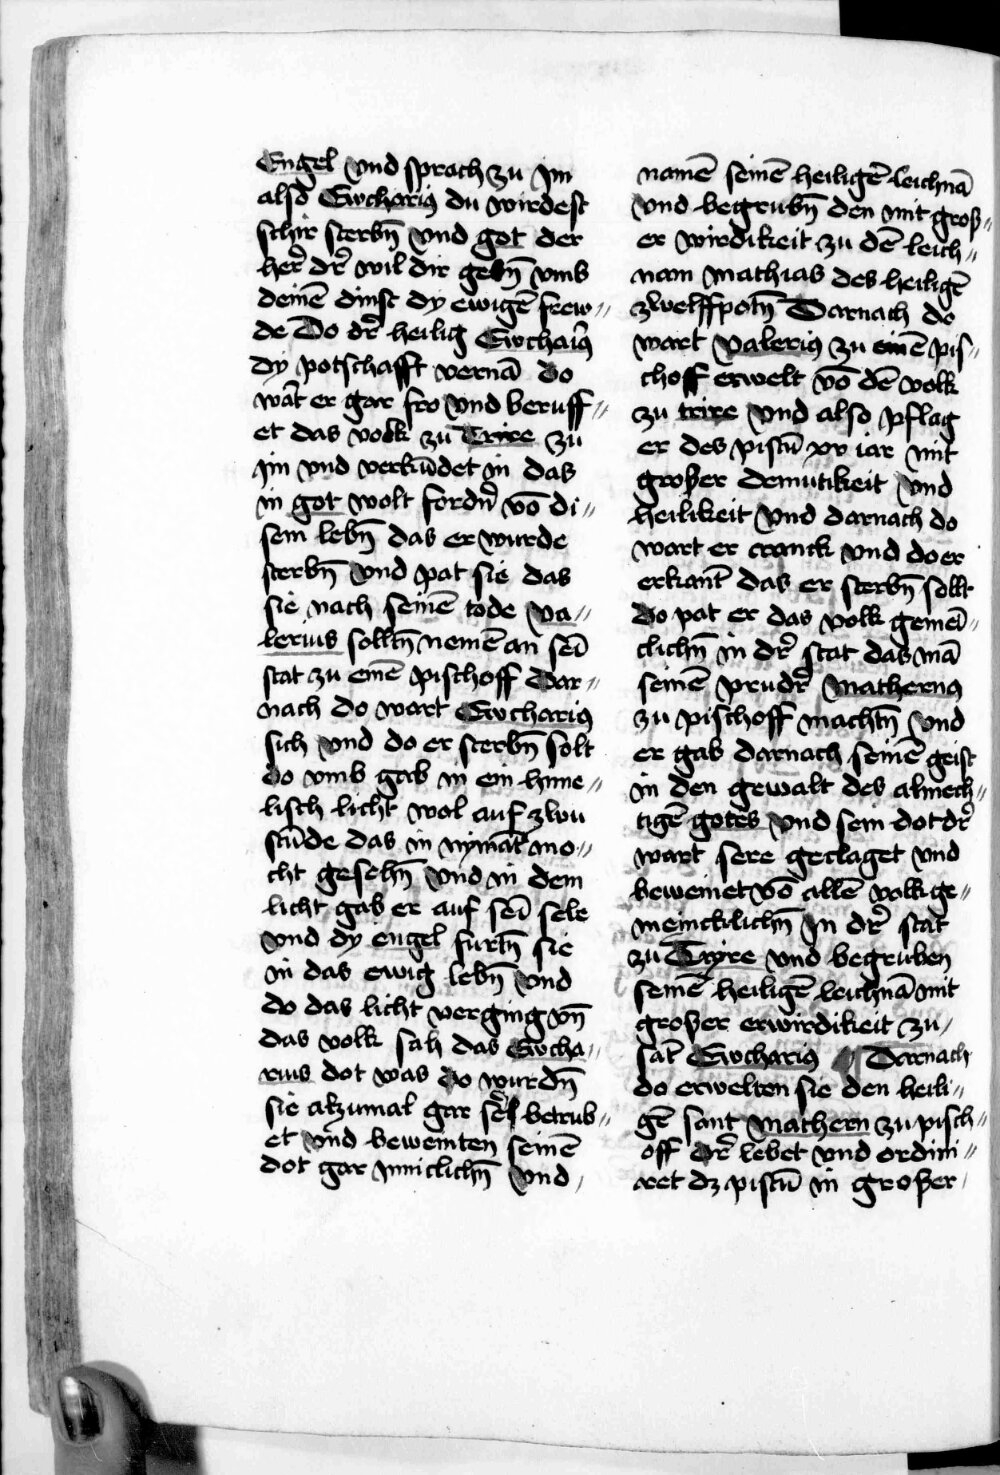 Engel vnd sprach zu Im
also Ewcharius du wirdest
schir sterbn̄ vnd got der
her̄ dr̄ wil dir gebn̄ vmb
deinē dinst dy ewigē frew〃
de Do dr̄ heilig Ewchariꝰ
dy potschafft vernā do
wāt er gar fro vnd beruff〃
et das volk zu Trire zu
im vnd verkūdet in das
in got wolt fordn̄ vō di〃
sem lebn̄ das er wurde
sterbn̄ vnd pat sie das
sie nach seinē tode va〃
lerius solltn̄ nemē an sei̅
stat zu einē pischoff Dar〃
nach do wart Ewchariꝰ
sich vnd do er sterbn̄ solt
do vmb gab in ein hime〃
lisch licht wol auf zwu
stūde das in nymāt mo〃
cht gesehn̄ vnd in dem
licht gab er auf sei̅ sele
vnd dy engel furtn̄ sie
in das ewig lebn̄ vnd
do das licht verging vn̄
das volk sah das Ewcha〃
rius dot was do wurdn̄
sie alzumal gar ser betrub〃
et vnd beweinten seinē
dot gar inniclichn̄ vnd
namē seinē heiligē leichnā
vnd begrubn̄ den mit groß〃
er wirdikeit zu dē leich〃
nam mathias des heiligē
zwelffpotn̄ Darnach do
wart valeriꝰ zu einē pis〃
choff erwelt vō dē volk
zu trire vnd also pflag
er des pistū xv iar mit
großer demutikeit vnd
heilikeit vnd darnach do
wart er cranck vnd do er
erkant das er sterbn̄ sollt
do pat er das volk gemei̅〃
clichn̄ in dr̄ stat das mā
seinē prudr̄ Mathernꝰ
zu pischoff machtn̄ vnd
er gab darnach seinē geist
in den gewalt des almech〃
tigē gotes vnd sein dot dr̄
wart sere geclaget vnd
beweinet vō allē volk ge〃
meincklichn̄ In dr̄ stat
zu Tryre vnd begruben
seinē heiligē leichnā mit
großer erwirdikeit zu
sāt Ewchariꝰ Darnach
do erwelten sie den heili〃
gē sant mathern zu pisch〃
off dr̄ lebet vnd ordini〃
ret dz pistū in großer